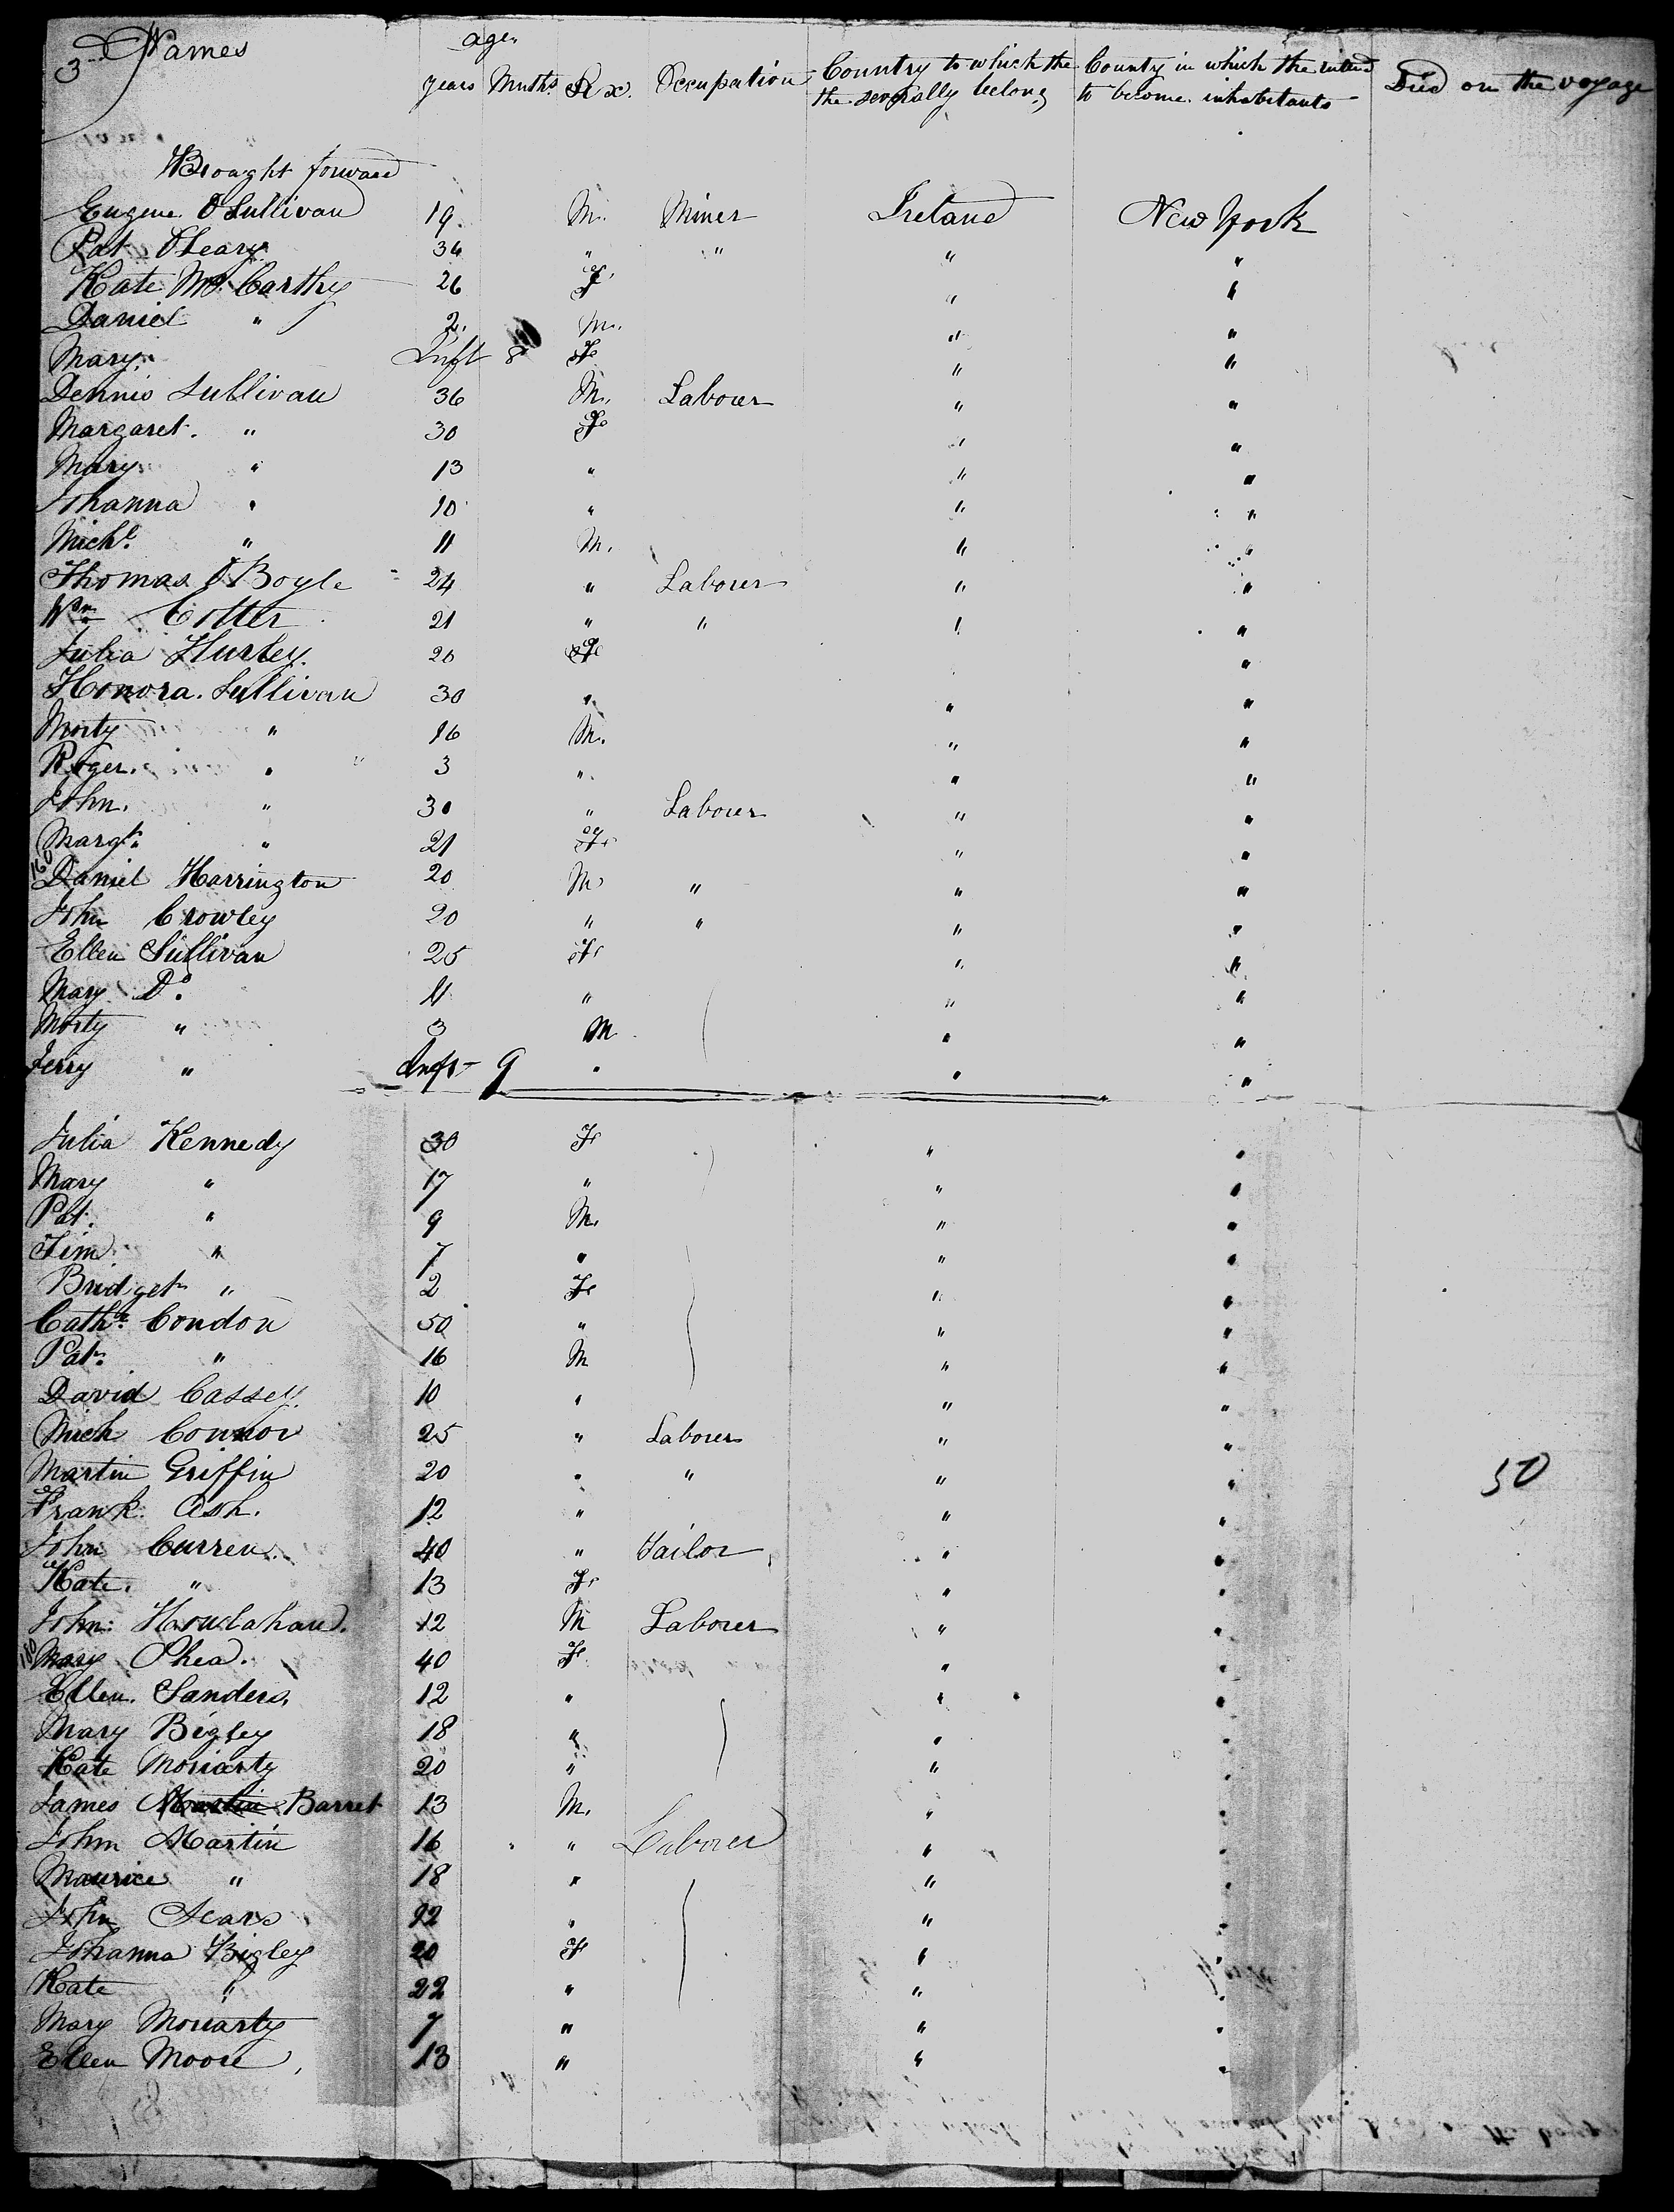 3 Names age. years Mnths Sex. Occupation Country to which the the severally belong County in which the intend to become inhabitants Died on the voyage
Brought forward
Eugene O'Sullivan 19. M. Miner Ireland New York
Pat O'Leary 34 " " " "
Kate Mc. Carthy 26 F. " "
Daniel " 2. M. " "
Mary. Inft 8 Fe " "
Dennis Sullivan 36 M. Labourer " "
Margaret. " 30 Fe " "
Mary " 13 " " "
Johanna " 10 " " "
Michl. " 11 M. " "
Thomas O'Boyle 24 " Labourer " "
Wm Cotter 21 " " " "
Julia Hurley. 20 Fe "
Honora. Sullivan 30 " " "
Morty " 16 M. " "
Roger. " 3 " " "
John. " 30 " Labourer " "
Margt. " 21 Fe " "
160 Daniel Harrington 20 M " " "
John Crowley 20 " " " "
Ellen Sullivan 25 Fe " "
Mary Do. 11 " " "
Morty " 3 M " "
Jerry " Inft 9 " " "
Julia Kennedy 30 Fe " "
Mary " 17 " " "
Pat. " 9 M. " "
Tim " 7 " " "
Bridget " 2 Fe " "
Cathe. Condon 50 " " "
Pat. " 16 M " "
David Cassey. 10 " " "
Mich Connor 25 " Laborer " "
Martin Griffin 20 " " " " 50
Frank. Ash. 12 " " "
John Curren. 40 " Tailor " "
Kate. " 13 Fe " "
John: Houlahan. 12 M Laborer " "
180 Mary Shea. 40 Fe " "
Ellen. Sanders. 12 " " "
Mary Bigley 18 " " "
Kate Moriarty 20 " " "
James Martin Barret 13 M. " "
John Martin 16 " Laborer " "
Maurice " 18 " " "
John Sears 22 " " "
Johanna Bigley 20 Fe " "
Kate " 22 " " "
Mary Moriarty 7 " " "
Ellen Moore 13 " " "